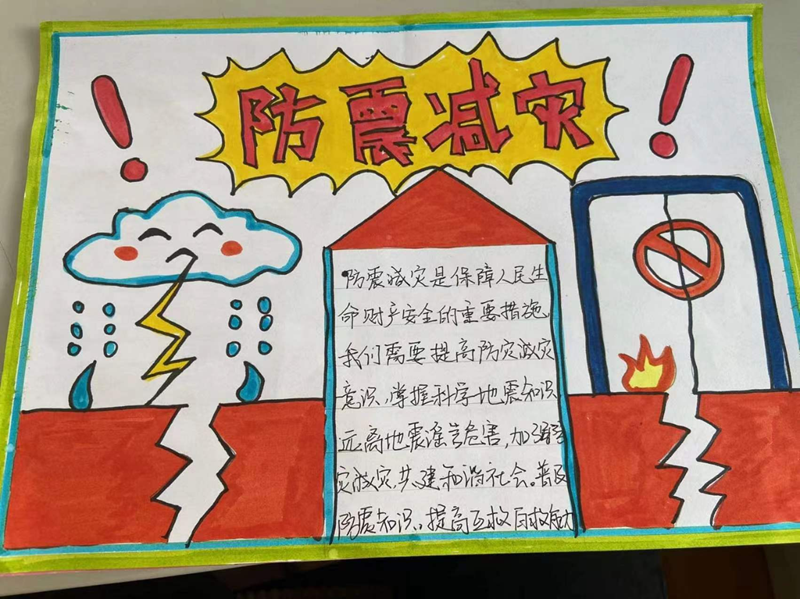 防震减灾
防震减灾是保障人民生
命财产安全的重要措施,
我们需要提高防灾救灾
意识,掌握科学地震知识
远离地震谣言危害,加强
灾救灾,共建和谐社会。普及
防震知识,提高互救自救